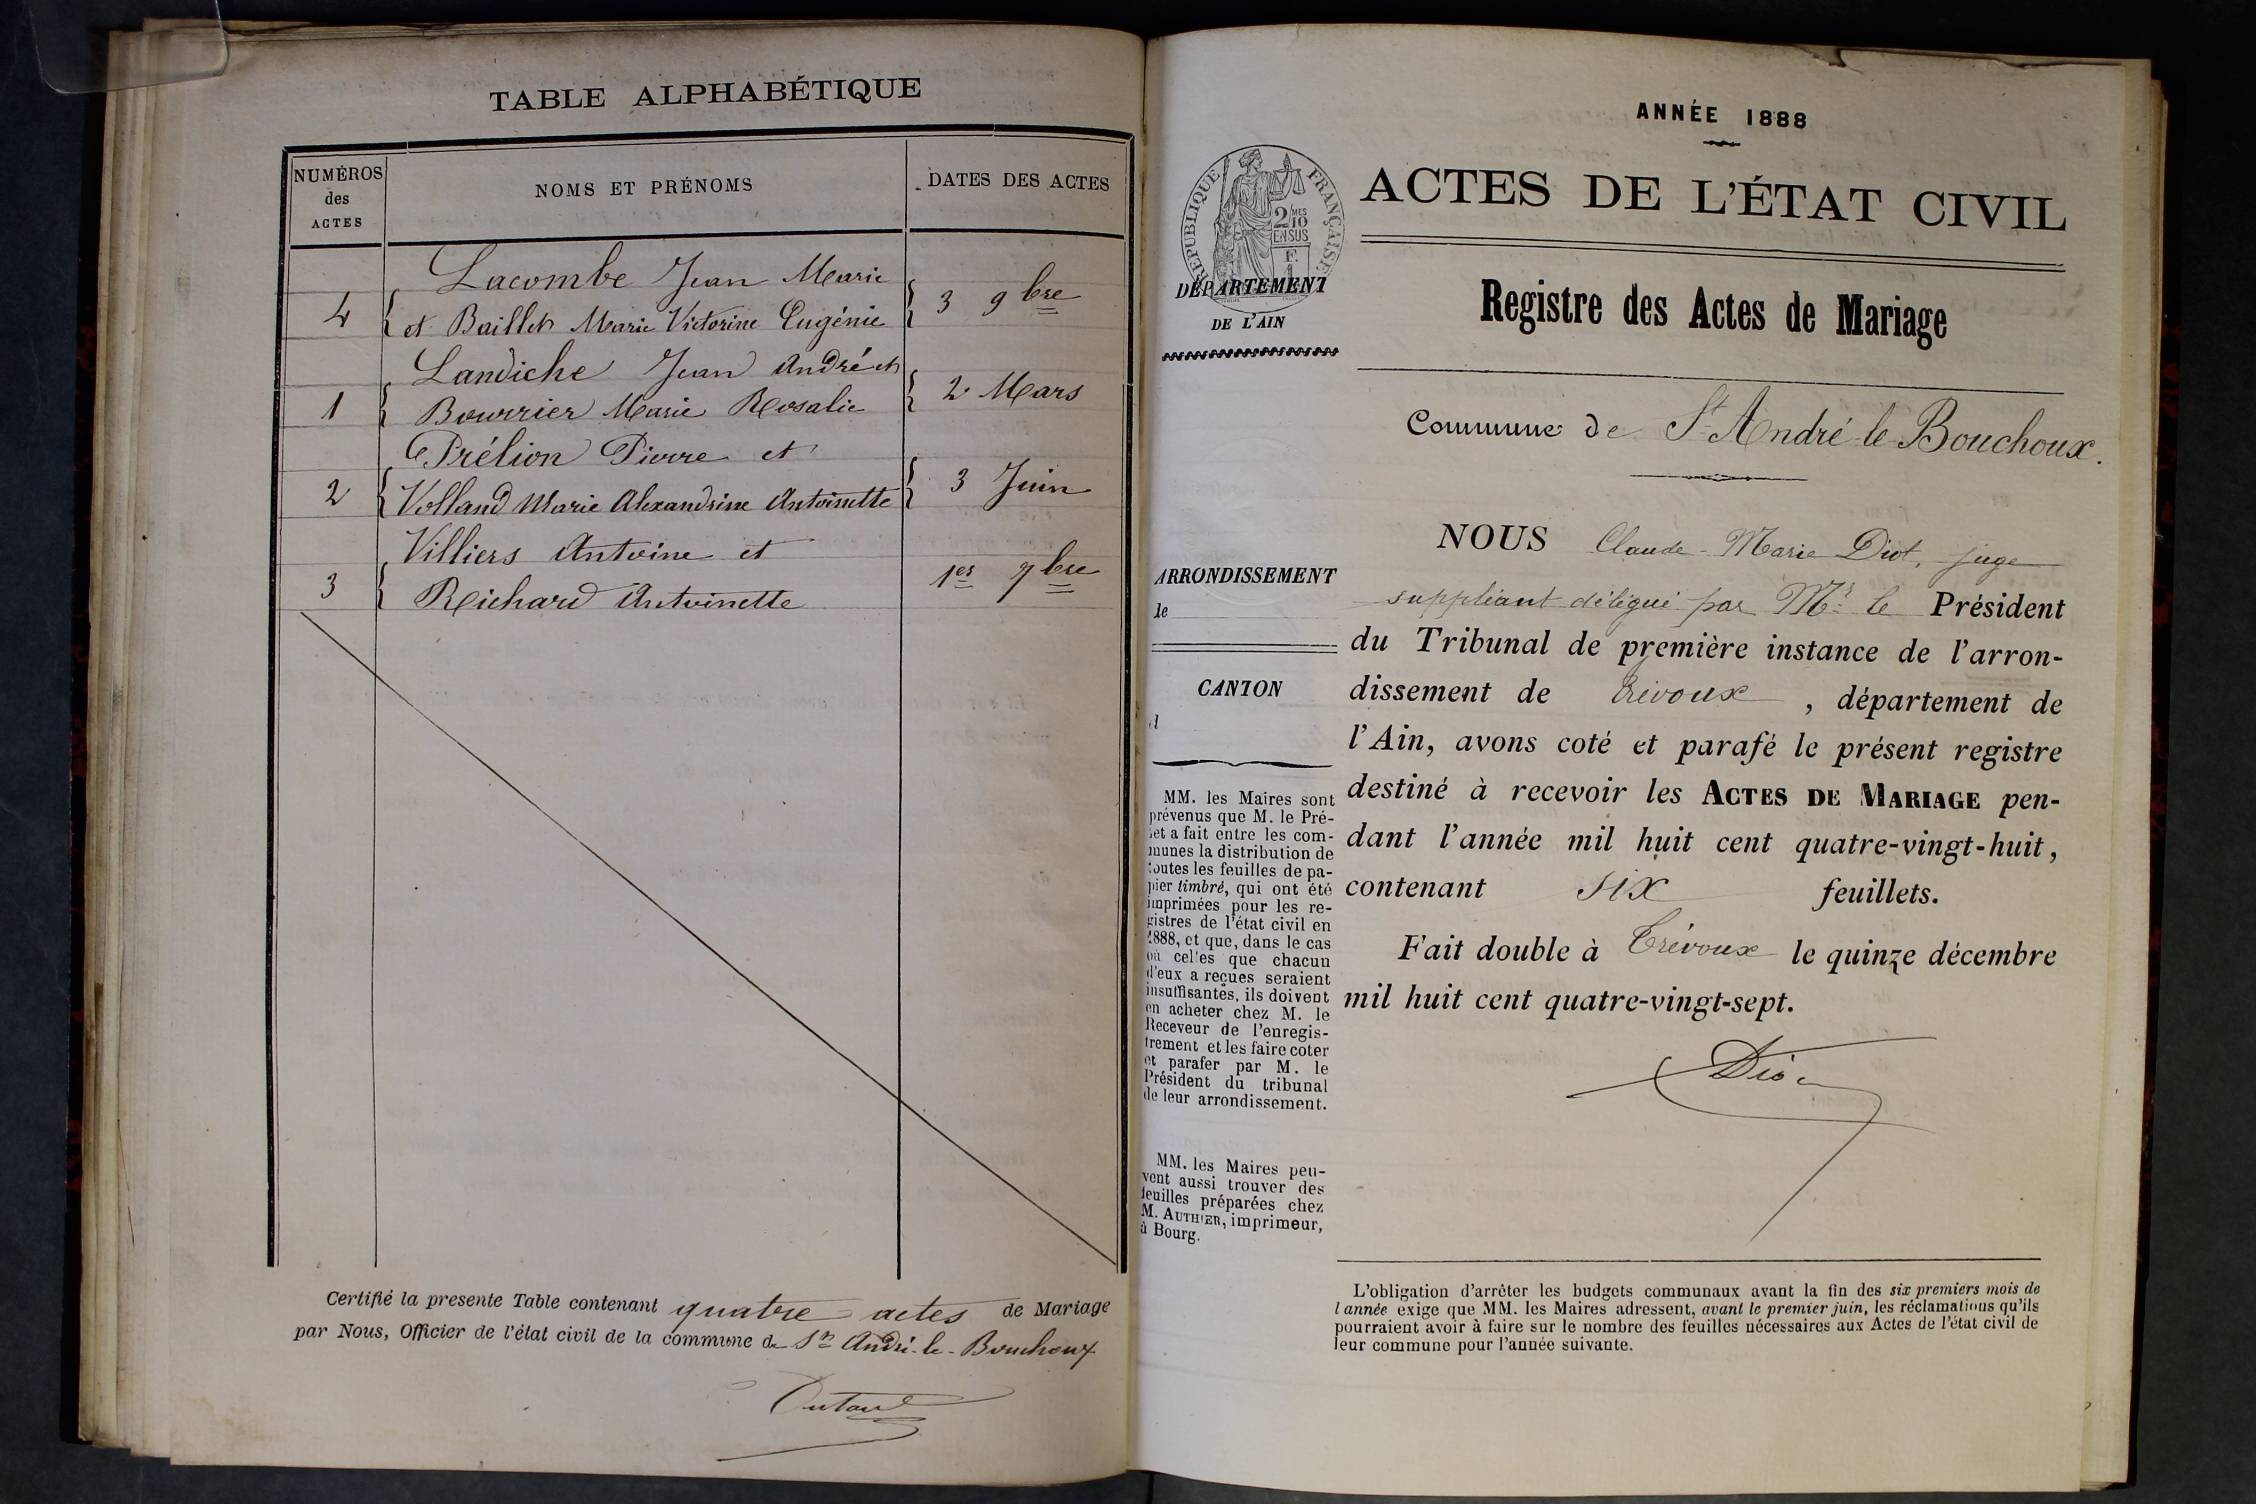 TABLE ALPHABÉTIQUE
NUMÉROS des ACTES
NOMS ET PRÉNOMS
DATES DES ACTES
Lacombe Jean Marie
4 et Baillet Marie Victorine Eugénie 3 9bre
Landiche Jean André et
1 Bourrier Marie Rosalie 2 Mars
Prélion Pierre et
2 Volland Marie Alexandrine Antoinette 3 Juin
Villiers Antoine et
3 Richard Antoinette 1er 7bre
Certifié la presente Table contenant quatre actes de Mariage
par Nous, Officier de l'état civil de la commune de St André-le-Bouchoux
ANNÉE 1888
ACTES DE L'ÉTAT CIVIL
RÉPUBLIQUE FRANÇAISE
2/10 MES
EN SUS
DÉPARTEMENT
DE L'AIN
Registre des Actes de Mariage
Commune de St André-le-Bouchoux.
NOUS Claude-Marie Diot, juge
suppléant délégué par Mr. le Président
du Tribunal de première instance de l'arron-
dissement de Trévoux, département de
l'Ain, avons coté et parafé le présent registre
destiné à recevoir les ACTES DE MARIAGE pen-
dant l'année mil huit cent quatre-vingt-huit,
contenant six feuillets.
Fait double à Trévoux le quinze décembre
mil huit cent quatre-vingt-sept.
Diot
ARRONDISSEMENT
de
CANTON
d
MM. les Maires sont
prévenus que M. le Pré-
fet a fait entre les com-
munes la distribution de
toutes les feuilles de pa-
pier timbré, qui ont été
imprimées pour les re-
gistres de l'état civil en
1888, et que, dans le cas
où celles que chacun
d'eux a reçues seraient
insuffisantes, ils doivent
en acheter chez M. le
Receveur de l'enregis-
trement et les faire coter
et parafer par M. le
Président du tribunal
de leur arrondissement.
MM. les Maires peu-
vent aussi trouver des
feuilles préparées chez
M. AUTHIER, imprimeur,
à Bourg.
L'obligation d'arrêter les budgets communaux avant la fin des six premiers mois de
l'année exige que MM. les Maires adressent, avant le premier juin, les réclamations qu'ils
pourraient avoir à faire sur le nombre des feuilles nécessaires aux Actes de l'état civil de
leur commune pour l'année suivante.